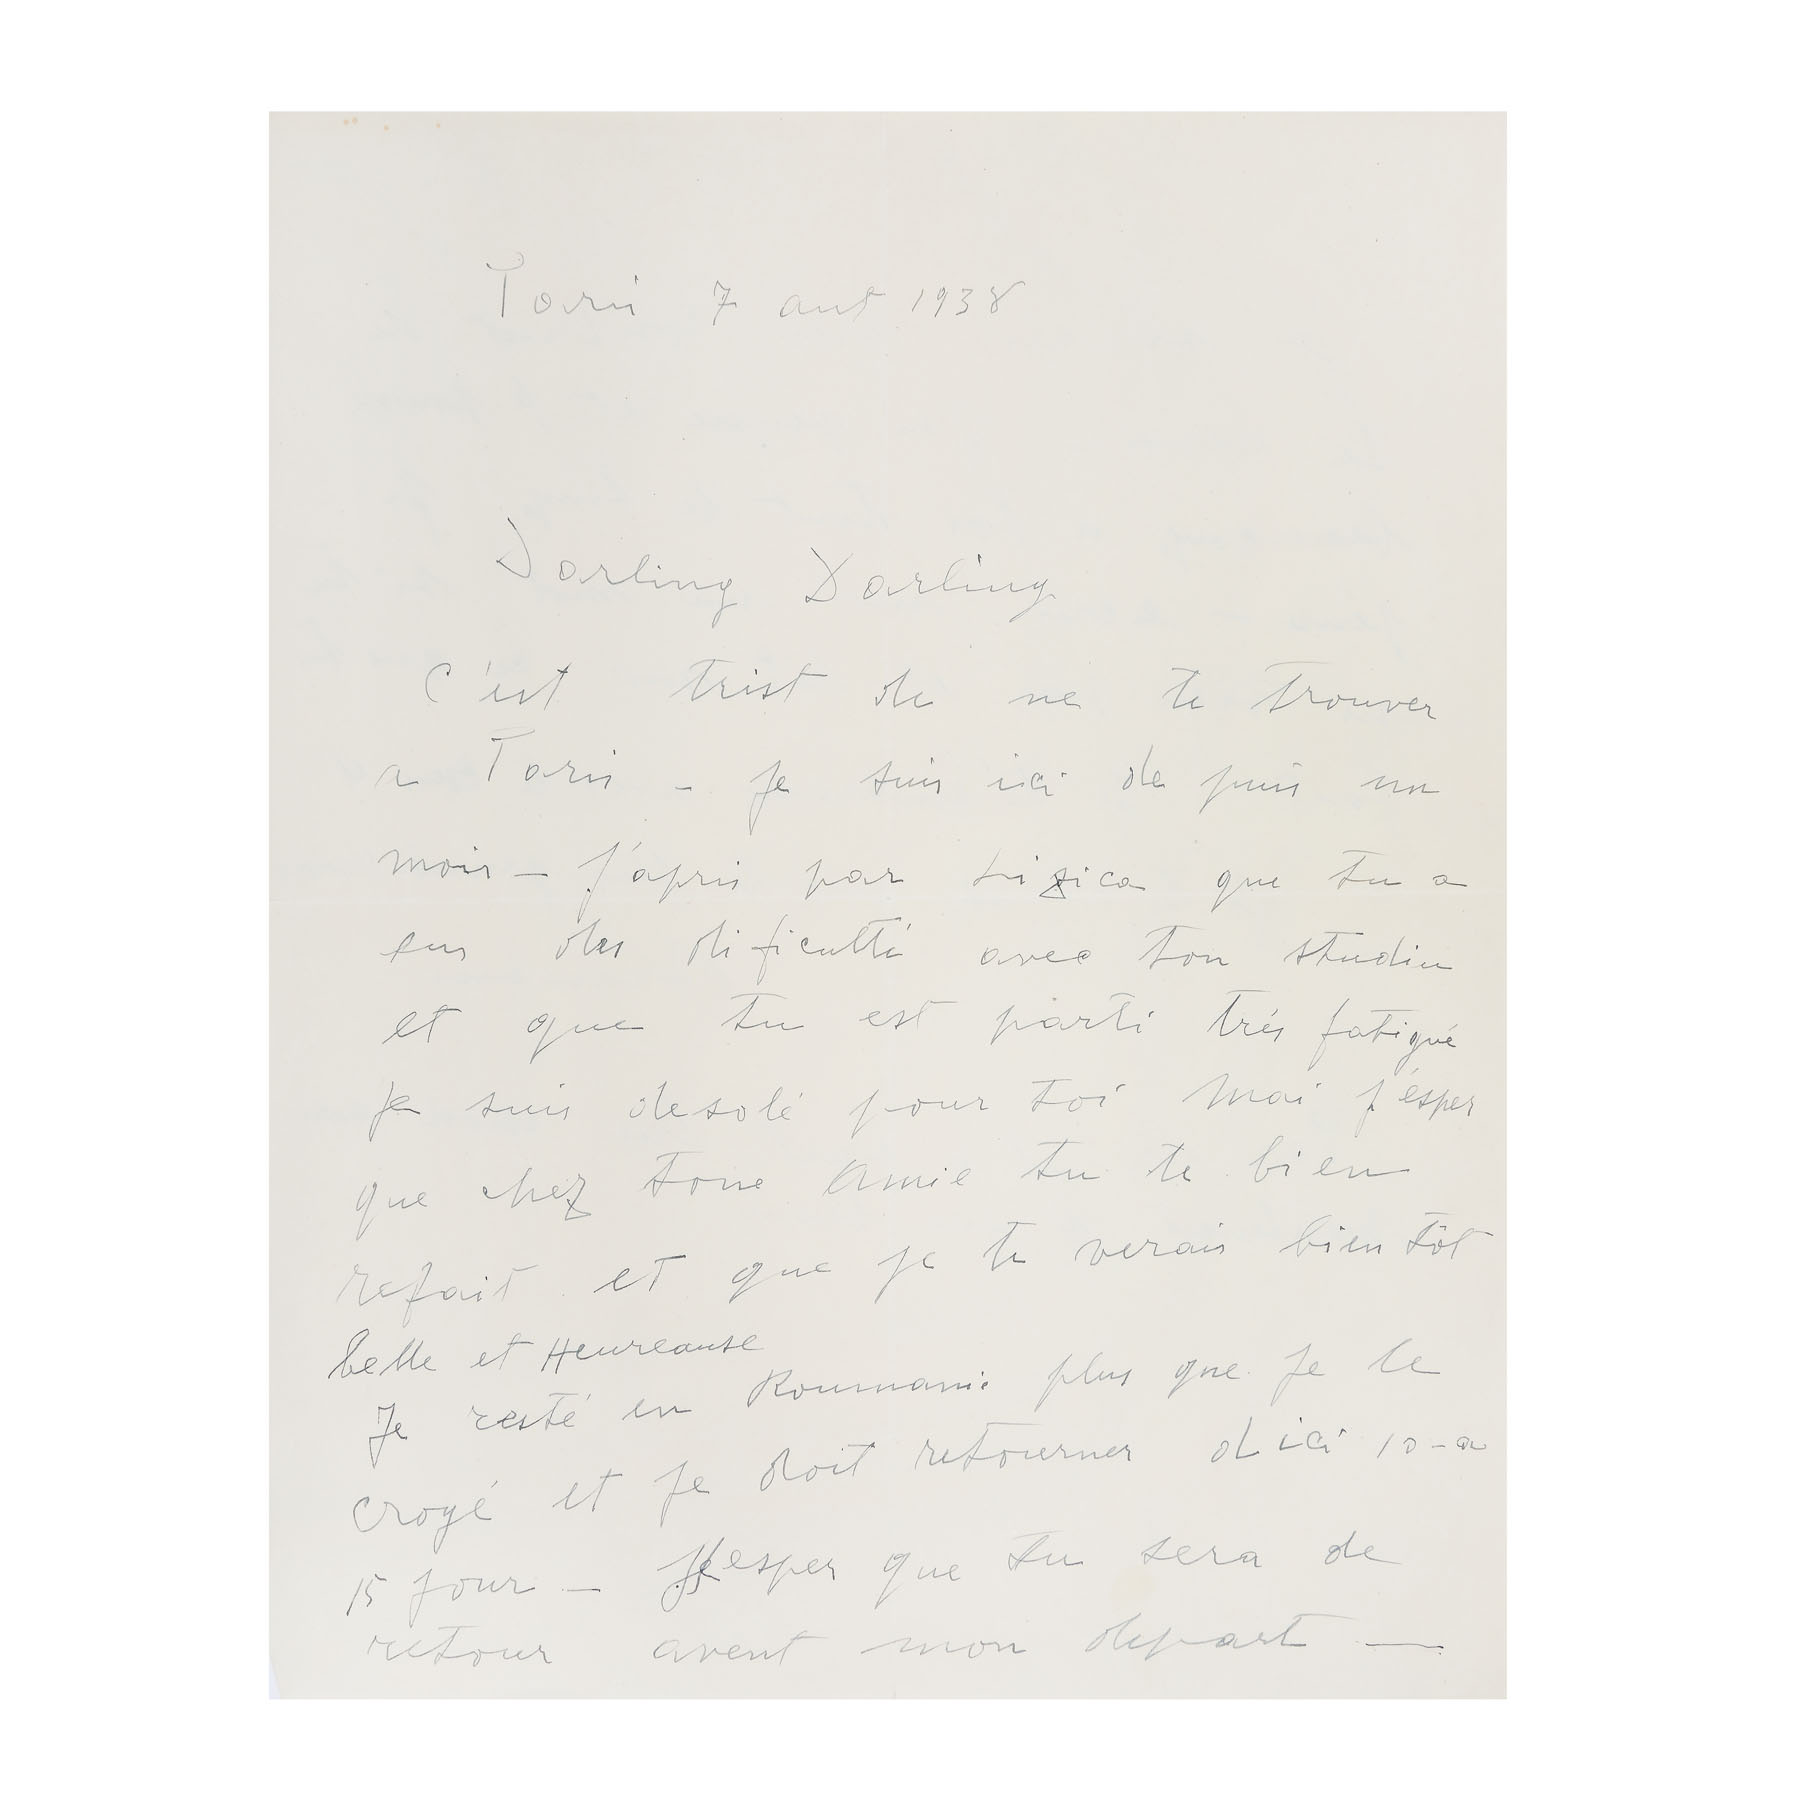 Paris 7 aut 1938
Darling Darling
C'est trist de ne te trouver
a Paris - Je suis ici de puis un
mois - J'apris par Lizica que tu a
eus des dificulté avec ton studiu
et que tu est parti très fatigué
Je suis desolé pour toi mai j'ésper
que chez tone Amie tu te bien
refait et que je te verais bien tôt
belle et Heureause
Je resté en Roumanie plus que Je le
croyé et Je doit retourner d ici 10-a
15 jour - J'esper que tu sera de
retour avent mon depart —